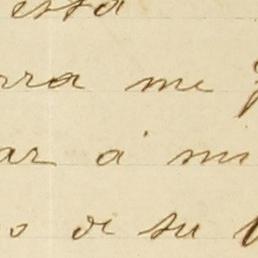 esta
rra me
ar á mi
o de su